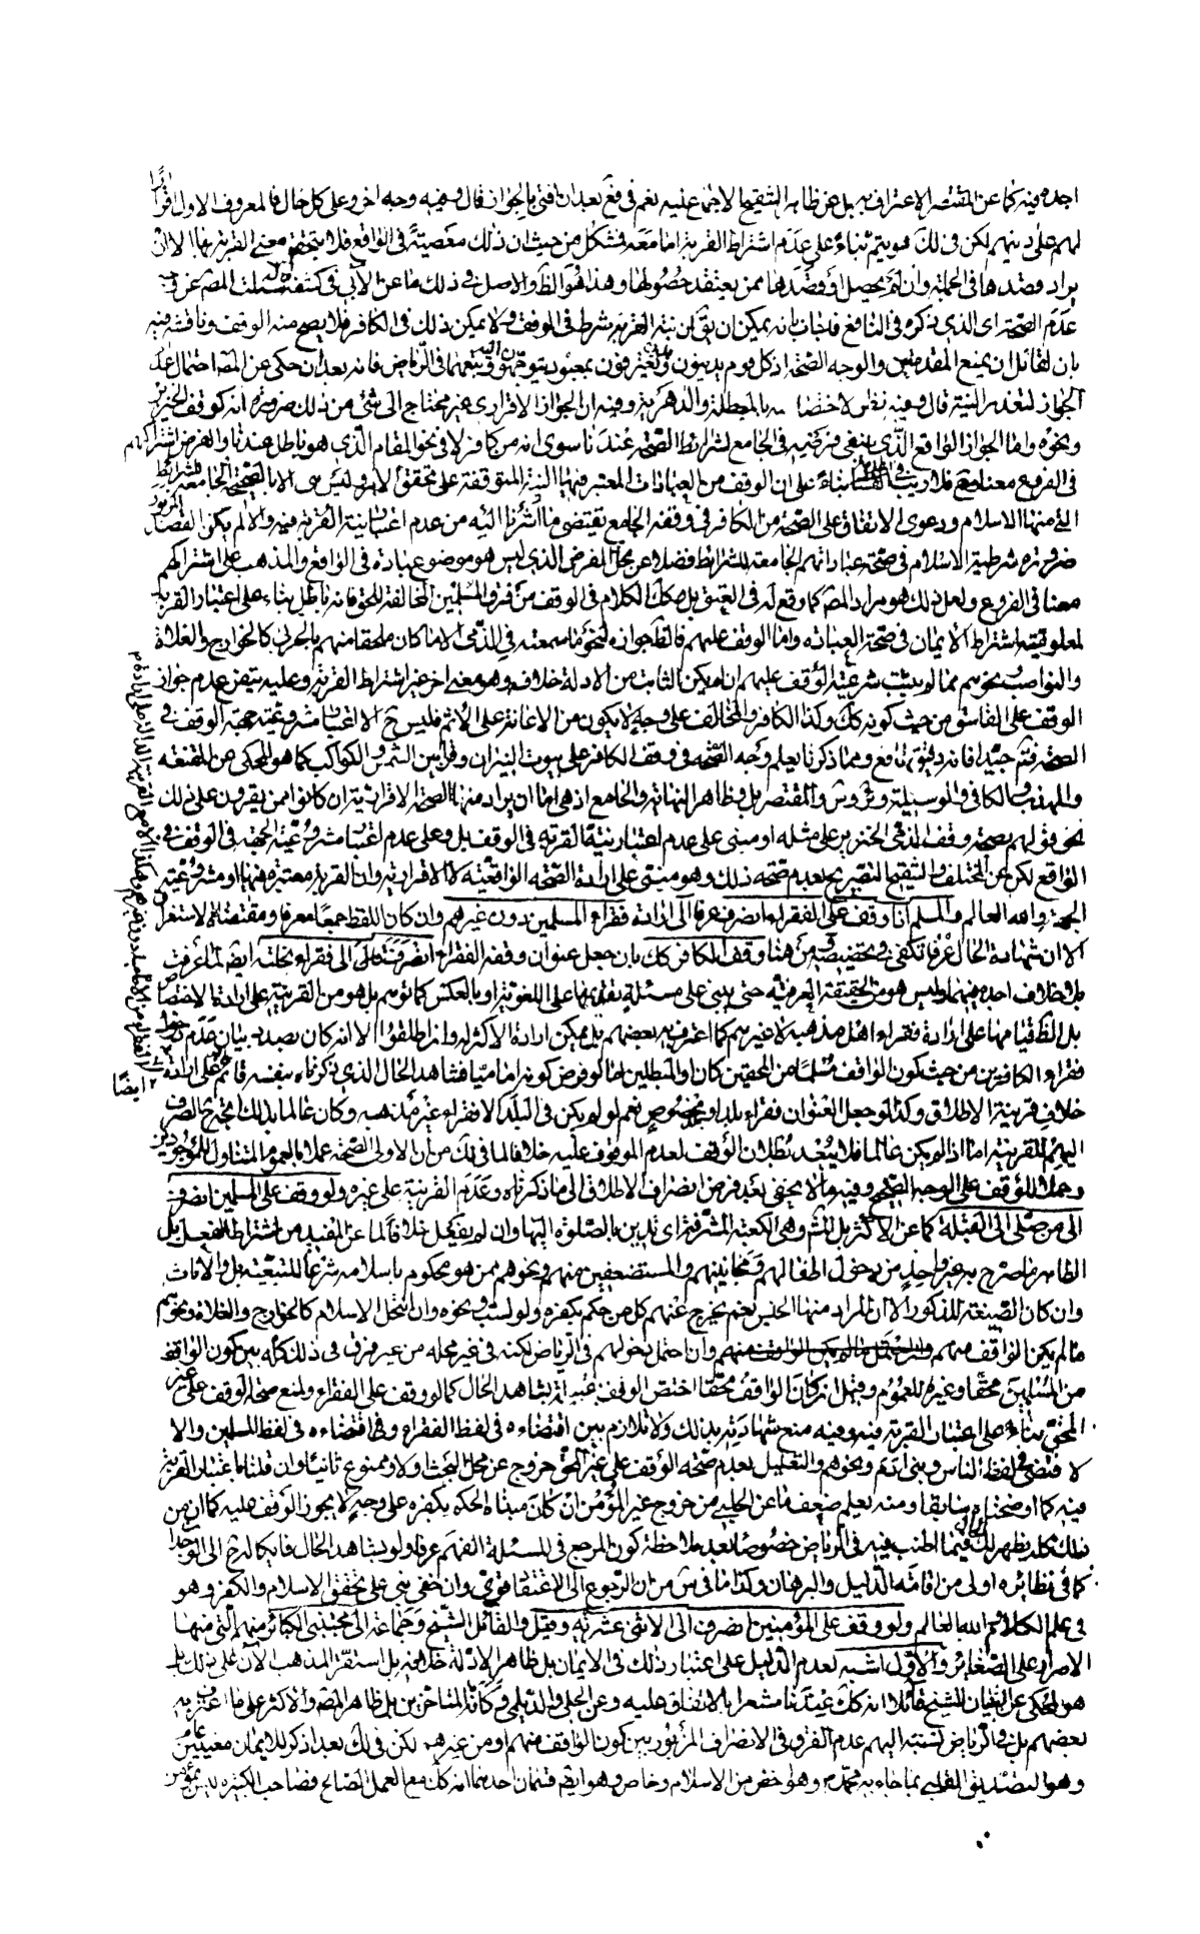 اجده فيه كما عن المقتصر الاعتراف به بل عن ظاهر التنقيح الاجماع عليه نعم في فع بعد ان افتى بالجواز قال وفيه وجه اخر وعلى كل حال فالمعروف الاول اقرارا
لهم على دينهم لكن في لك هو يتم بناء على عدم اشتراط القربة اما معه فمشكل من حيث ان ذلك معصية في الواقع فلا يتحقق معنى القربة بها الا ان
يراد قصدها في الجملة وان لم يحصل او قصدها ممن يعتقد حصولها وهذا هو الظ والاصل في ذلك ما عن الآبي في كشفه سئلت المص عن
عدم الصحة اي الذي ذكره في النافع فاجاب بانه يمكن ان يق ان نية القربة شرط في الوقف ولا يمكن ذلك في الكافر فلا يصح منه الوقف وناقشه فيه
بان لقائل ان يمنع المقدمتين والوجه الصحة اذ كل قوم يدينون بدين ويعترفون بمعبود يتوجهون اليه وتبعهما في الرياض فانه بعد ان حكى عن المص احتمال عدم
الجواز لتعذر النية قال وفيه نظر لاختصاصه بالمعطلة والدهرية وفيه ان الجواز الاقراري غير محتاج الى شئ من ذلك ضرورة انه كوقف الخنزير
ونحوه واما الجواز الواقعي الذي ينبغي فرضه في الجامع لشرائط الصحة عندنا سوى انه من كافر لا في نحو المقام الذي هو باطل عندنا والفرض اشتراكهم
في الفروع معنا فلا ريب في بناء على ان الوقف من العبادات المعتبر فيها النية المتوقفة على تحقق الامر وليس هي الا بالصحيح الجامعة للشرائط
التي منها الاسلام ودعوى الاتفاق على الصحة من الكافر في وقفه الجامع يقتضي ما اشرنا اليه من عدم اعتبار نية القربة فيه والا لم يكن لفصل
ضرورة شرطية الاسلام في صحة عباداتهم الجامعة للشرائط فضلا عن محل الفرض الذي ليس هو موضوع عبادة في الواقع والمذهب على اشتراكهم
معنا في الفروع ولعل ذلك هو مراد المص كما وقع له في العتق بل مكك الكلام في الوقف من فرق المسلمين المخالفة للحق فانه باطل بناء على اعتبار القربة
لمعلومية اشتراط الايمان في صحة العبادة واما الوقف عليهم فالظ جوازه لنحو ما سمعته في الذمي الا ما كان ملحقا منهم بالحربي كالخوارج والغلاة
والنواصب ونحوهم مما لم يثبت شرعية الوقف عليهم ان لم يكن الثابت من الادلة خلافه وهو معنى اخر غير اشتراط القربة وعليه يتفرع عدم جواز
الوقف على الفاسق من حيث كونه كك وكذا الكافر والمخالف على وجه لا يكون من الاعانة على الاثم فليس ح الا اعتبار مشروعية جهة الوقف في
الصحة فتم جيدا فانه دقيق نافع ومما ذكرنا يعلم وجه الصحة في وقف الكافر على بيوت النيران وقرابين الشمس والكواكب كما هو المحكي عن المقنعة
والمهذب والكافي والوسيلة وش وس والمقتصر بل وظاهر النهاية والجامع اذ هي اما ان يراد منها الصحة الاقرارية ان كانوا ممن يقرون على ذلك
نحو قولهم بصحة وقف الذمي الخنزير على مثله او مبني على عدم اعتبار نية القربة في الوقف بل وعلى عدم اعتبار مشروعية الجهة في الوقف في
الواقع لكن عن المختلف والتنقيح التصريح بعدم صحة ذلك وهو مبني على ارادة الصحة الواقعية لا الاقرارية وان القربة معتبرة فيها او مشروعية
الجهة والله العالم والمسلم اذا وقف على الفقراء انصرف عرفا الى ارادة فقراء المسلمين دون غيرهم وان كان اللفظ جمعا معرفا ومقتضاه الاستغراق
الا ان شهادة الحال عرفا تكفي في تخصيصه ومن هنا وقف الكافر كك بان جعل عنوان وقفه الفقراء انصرف ذلك الى فقراء نحلته ايضا لما عرفت
بلا خلاف اجده فيهما وليس هو من الحقيقة العرفية حتى يبني على مسئلة تقديمها على اللغوية او بالعكس كما توهم بل هو من القرينة على ارادة الاختصاص
بل الظ قيامها على ارادة فقراء اهل مذهبه لا غيرهم كما اعترف به بعضهم بل يمكن ارادة الاكثر له وان اطلقوا الا انه كان بصدد بيان عدم دخول
فقراء الكافرين من حيث كون الواقف مسلما من المحقين كان او المبطلين اما لو فرض كونه اماميا فشاهد الحال الذي ذكرناه بنفسه قائم على ارادة
خلاف قرينة الاطلاق وكذا لو جعل العنوان فقراء بلد او مخصوص نعم لو لم يكن في البلد الا فقراء غير مذهبه وكان عالما بذلك اتجه ح الصرف
اليهم للقرينة اما اذا لم يكن عالما فلا يبعد بطلان الوقف لعدم الموقوف عليه خلافا لما في لك من ان الاولى الصحة عملا بالعموم المتناول للموجودين
وحملا للوقف على الوجه الصحيح وفيه ما لا يخفى بعد فرض انصراف الاطلاق الى ما ذكرناه وعدم القرينة على غيره ولو وقف على المسلمين انصرف
الى من صلى الى القبلة كما عن الاكثر بل المش وهي الكعبة المشرفة اي تدين بالصلوة اليها وان لم يفعل خلافا لما عن المفيد من اشتراط الفعل بل
الظاهر ما صرح به غير واحد من دخول اطفالهم ومجانينهم والمستضعفين منهم ونحوهم ممن هو محكوم باسلامه شرعا للتبعية بل والاناث
وان كان الصيغة للذكور الا ان المراد منها الجنس نعم يخرج عنهم كل من حكم بكفره ولو لسب ونحوه وان انتحل الاسلام كالخوارج والغلاة ونحوهم
ما لم يكن الواقف منهم وان احتمل دخولهم في الرياض لكنه في غير محله من غير فرق في ذلك كله بين كون الواقف
من المسلمين محقا وغيره للعموم وقيل ان كان الواقف محقا اختص الوقف بقبيله لشاهد الحال كما لو وقف على الفقراء ولمنع صحة الوقف على غير
المحق بناء على اعتبار القربة فيه وفيه منع شهادته بذلك ولا تلازم بين اقتضاءه في لفظ الفقراء وفي اقتضاءه في لفظ المسلمين والا
لاقتضى في لفظ الناس وبني ادم ونحوهم والتعليل بعدم صحة الوقف على غير المحق خروج عن محل البحث اولا وممنوع ثانيا وان قلنا باعتبار القربة
فيه كما اوضحناه سابقا ومنه يعلم ضعف ما عن الحلي من خروج غير المؤمن ان كان مبناه الحكم بكفره على وجه لا يجوز الوقف عليه كما ان من
ذلك كله يظهر لك ما اطنب فيه في الرياض خصوصا بعد ملاحظة كون المرجع في المسئلة الفهم عرفا ولو بشاهد الحال فايكاله ح الى الوجدان
كما في نظائره اولى من اقامة الدليل والبرهان وكذا ما في ش من ان الرجوع الى الاعتقاد قوي وان خفي بني على تحقق الاسلام والكفر وهو
في علم الكلام والله العالم ولو وقف على المؤمنين انصرف الى الاثنى عشرية وقيل والقائل الشيخ وجماعة الى مجتنبي الكبائر منهم التي منها
الاصرار على الصغائر والاول اشبه لعدم الدليل على اعتبار ذلك في الايمان بل ظاهر الادلة خلافه بل استقر المذهب الآن على ذلك بل
هو المحكي عن التبيان للشيخ قائلا انه كك عندنا مشعرا بالاتفاق عليه وعن الحلي والديلمي وكافة المتاخرين بل ظاهر المص والاكثر على ما اعترف به
بعضهم بل في الرياض نسبته اليهم عدم الفرق في الانصراف المزبور بين كون الواقف منهم او من غيرهم لكن في لك بعد ان ذكر للايمان معنيين عام
وهو التصديق القلبي بما جاء به محمد ص وهو اخص من الاسلام وخاص وهو ايضا قسمان احدهما انه كك مع العمل الصالح فصاحب الكبيرة ليس بمؤمن